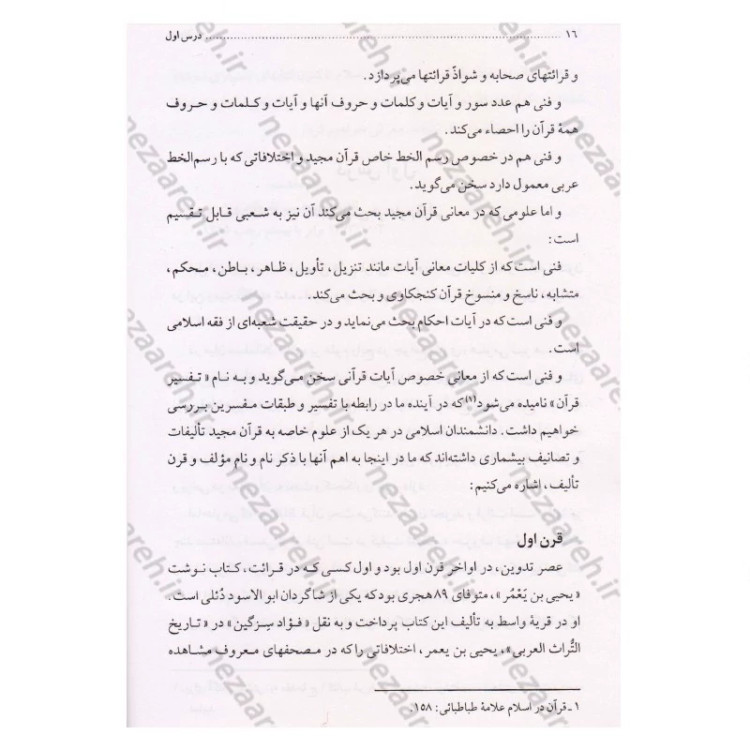 ۱۶ ........ درس اول
و قرائتهای صحابه و شواذّ قرائتها می‌پردازد.
و فنی هم عدد سور و آیات و کلمات و حروف آنها و آیات و کلمات و حروف
همهٔ قرآن را احصاء می‌کند.
و فنی هم در خصوص رسم الخط خاص قرآن مجید و اختلافاتی که با رسم‌الخط
عربی معمول دارد سخن می‌گوید.
و اما علومی که در معانی قرآن مجید بحث می‌کند آن نیز به شعبی قابل تقسیم
است:
فنی است که از کلیات معانی آیات مانند تنزیل، تأویل، ظاهر، باطن، محکم،
متشابه، ناسخ و منسوخ قرآن کنجکاوی و بحث می‌کند.
و فنی است که در آیات احکام بحث می‌نماید و در حقیقت شعبه‌ای از فقه اسلامی
است.
و فنی است که از معانی خصوص آیات قرآنی سخن می‌گوید و به نام «تفسیر
قرآن» نامیده می‌شود(۱) که در آینده ما در رابطه با تفسیر و طبقات مفسرین بررسی
خواهیم داشت. دانشمندان اسلامی در هر یک از علوم خاصه به قرآن مجید تألیفات
و تصانیف بیشماری داشته‌اند که ما در اینجا به اهم آنها با ذکر نام و نام مؤلف و قرن
تألیف، اشاره می‌کنیم:
قرن اول
عصر تدوین، در اواخر قرن اول بود و اول کسی که در قرائت، کتاب نوشت
«یحیی بن یَعْمُر»، متوفای ۸۹ هجری بود که یکی از شاگردان ابو الاسود دُئلی است.
او در قریهٔ واسط به تألیف این کتاب پرداخت و به نقل «فؤاد سزگین» در «تاریخ
التُّراث العربی»، یحیی بن یعمر، اختلافاتی را که در مصحفهای معروف مشاهده
۱ ـ قرآن در اسلام علامهٔ طباطبائی: ۱۵۸.
nezaareh.ir